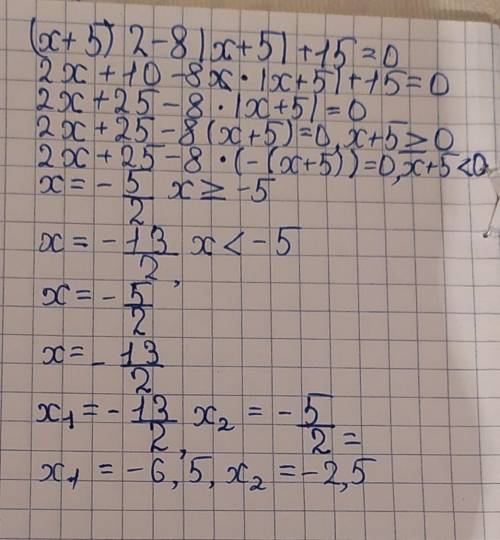 (x+5) 2-8|x+5|+15=0
2x+10-8x·|x+5|+15=0
2x+25-8·|x+5|=0
2x+25-8(x+5)=0, x+5≥0
2x+25-8·(-(x+5))=0, x+5<0
x=-5/2 x≥-5
x=-13/2, x<-5
x=-5/2
x=-13/2
x₁=-13/2, x₂=-5/2=
x₁=-6,5, x₂=-2,5